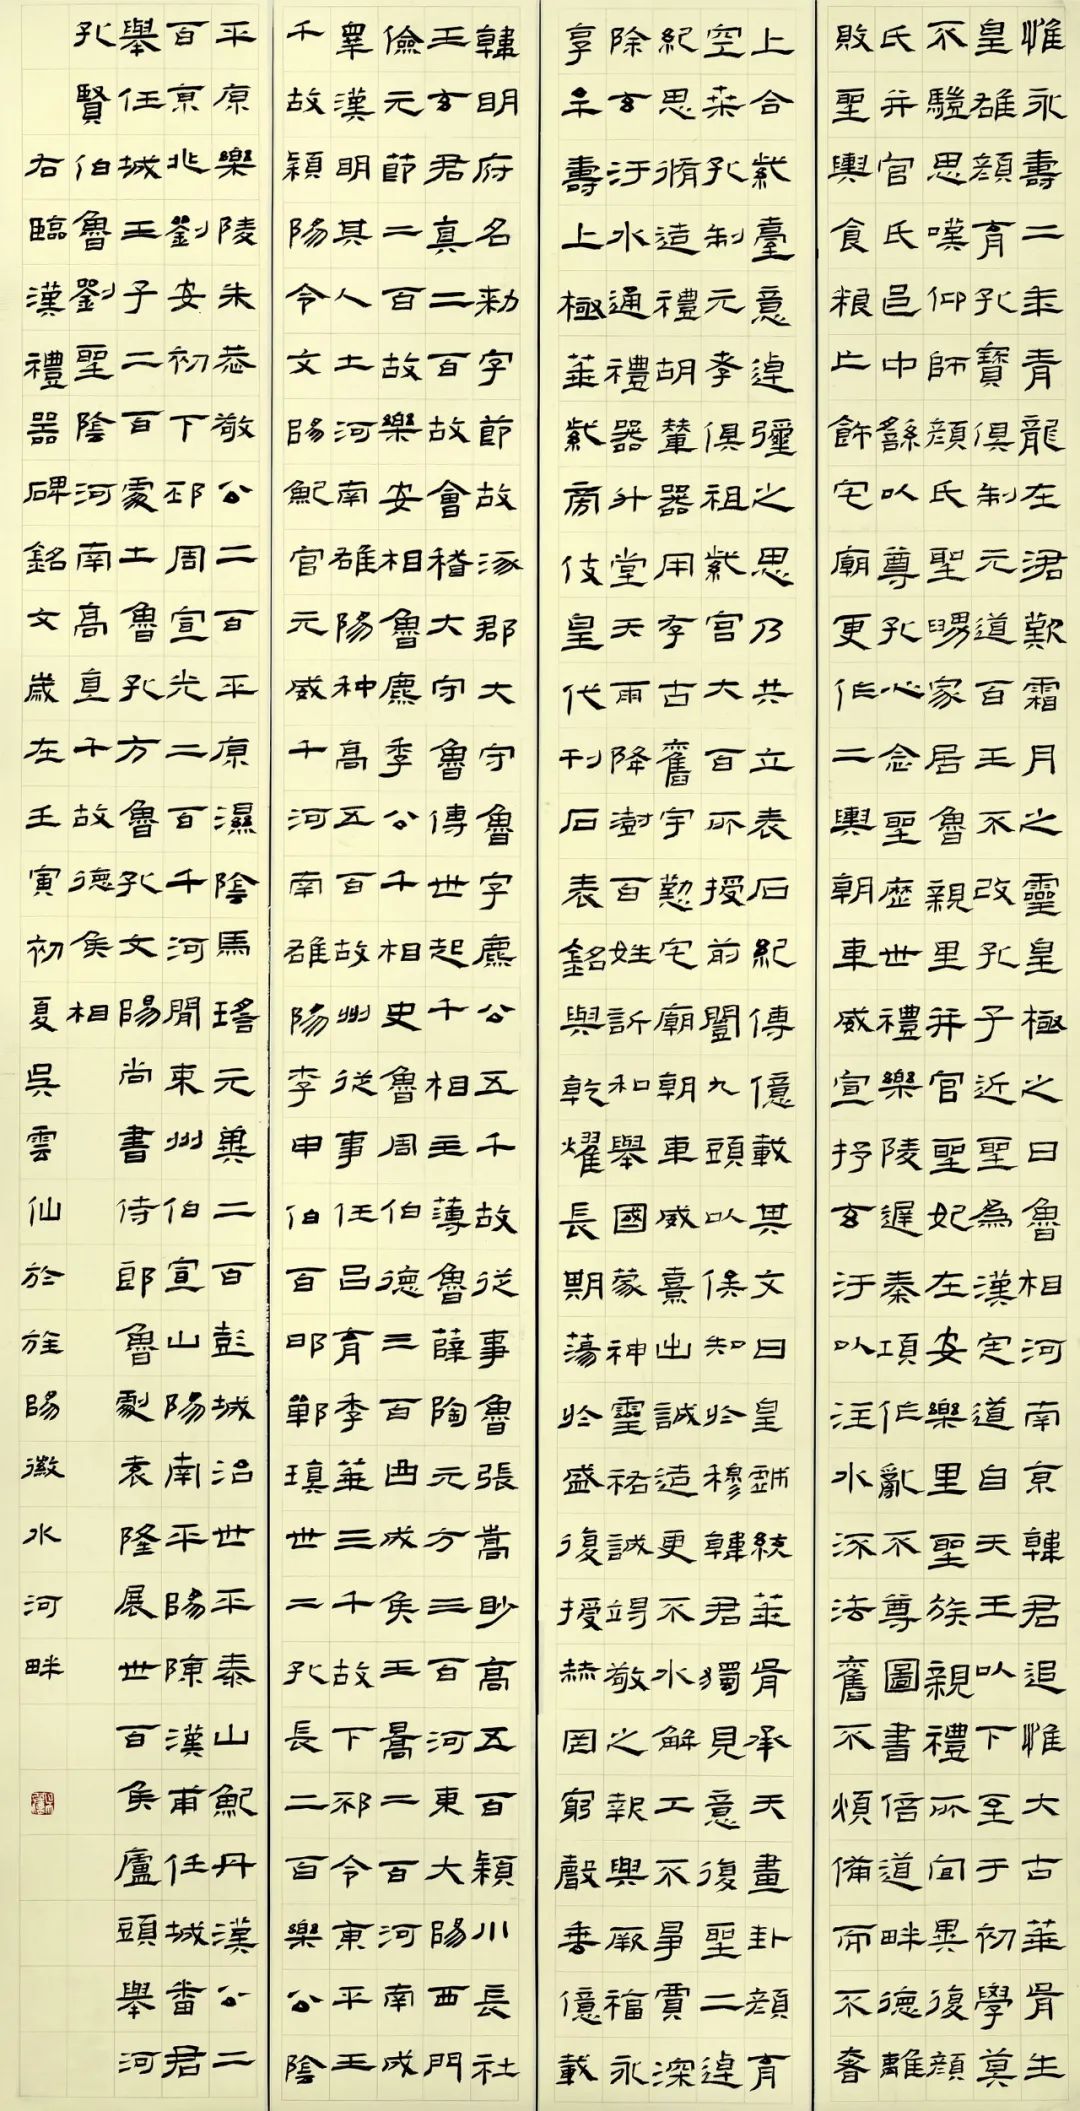 惟永壽二年青龍在涒歎霜月之靈皇極之日魯相河南京韓君追惟大古華胥生
皇雄顏育孔寶俱制元道百王不改孔子近聖為漢定道自天王以下至于初學莫
不驥思嘆仰師顏氏聖舅家居魯親里并官聖妃在安樂里聖族親禮所宜異復顏
氏并官氏邑中繇以尊孔心念聖歷世禮樂陵遲秦項作亂不尊圖書倍道畔德離
敗聖輿食粮亡飾宅廟更作二輿朝車威宣抒玄汙以注水流法舊不煩備而不奢
上合紫臺意逴彌之思乃共立表石紀傳億載其文曰皇戲統華胥承天畫卦顏育
空桑孔制元孝俱祖紫宮大百所授前闓九頭以俟知於穆韓君獨見意復聖二逴
紀思脩造禮胡輦器用存古舊宇慇宅廟朝車威熹出誠造更不水解工不爭賈深
除玄汙水通禮器升堂天雨降澍百姓訢和舉國蒙神靈祐誠竭敬之報與厥福永
享牟壽上極華紫旁伎皇代刊石表銘與乾燿長期蕩於盛復授赫罔窮聲垂億載
韓明府名勑字節故涿郡大守魯字麃公五千故從事魯張嵩眇高五百潁川長社
王玄君真二百故會稽大守魯傳世起千相主薄魯薛陶元方三百河東大陽西門
儉元節二百故樂安相魯麃季公千相史魯周伯德三百西成侯王暠二百河南成
睪漢明其人土河南雒陽种高五百故州從事任呂育季華三千故下邳令東平王
千故潁陽令文陽鮑官元威千河南雒陽李申伯百邯鄲瑱世二孔長二百樂公陰
平原樂陵朱恭敬公二百平原濕陰馬瑤元冀二百彭城治世平泰山鮑丹漢公二
百京兆劉安初下邳周宣光二百千河閒束州伯宣山陽南平陽陳漢甫任城番君
舉任城王子二百處土魯孔方魯孔文陽尚書侍郎魯劇袁隆展世百侯廬頭舉河
孔賢伯魯劉聖陰河南高直千故德侯相
右臨漢禮器碑銘文歲在壬寅初夏吳雲仙於旌陽徽水河畔